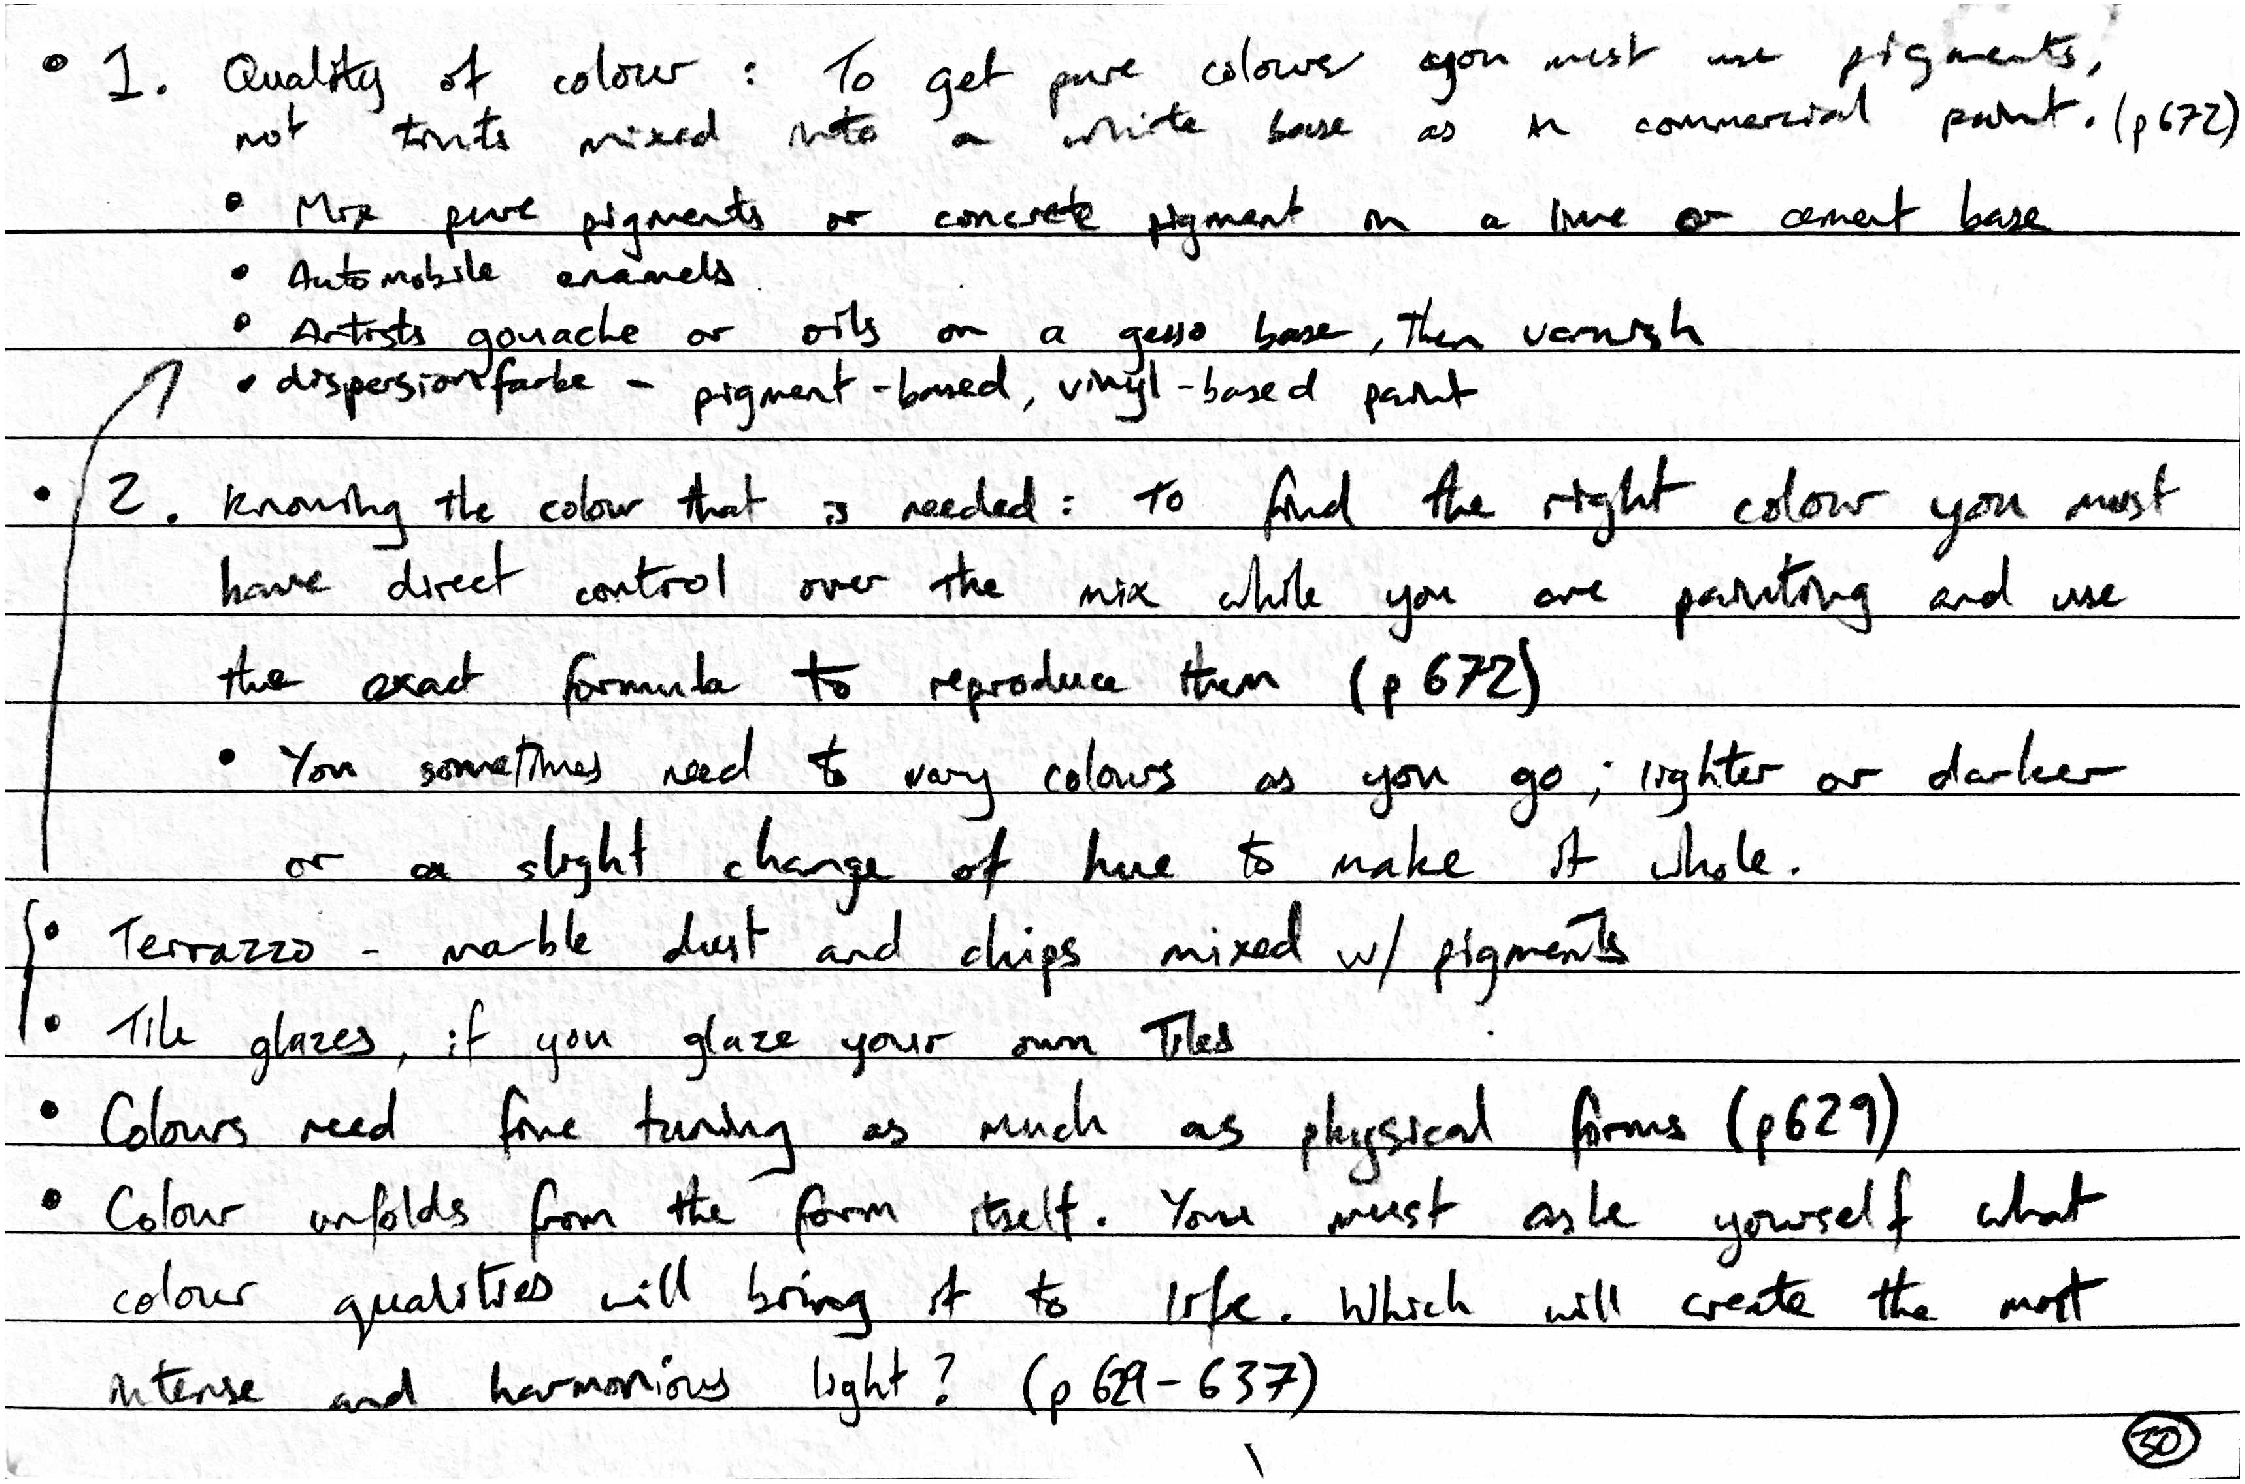 • 1. Quality of colour : To get pure colours you must use pigments,
not tints mixed into a white base as in commercial paint. (p672)
• Mix pure pigments or concrete pigment in a lime or cement base
• Automobile enamels
• Artists gouache or oils on a gesso base, then varnish
• dispersionfarbe - pigment-based, vinyl-based paint
• 2. Knowing the colour that is needed : To find the right colour you must
have direct control over the mix while you are painting and use
the exact formula to reproduce them (p 672)
• You sometimes need to vary colours as you go ; lighter or darker
or a slight change of hue to make it whole.
• Terrazzo - marble dust and chips mixed w/ pigments
• Tile glazes, if you glaze your own Tiles
• Colours need fine tuning as much as physical forms (p629)
• Colour unfolds from the form itself. You must ask yourself what
colour qualities will bring it to life. Which will create the most
intense and harmonious light? (p 629-637)
30